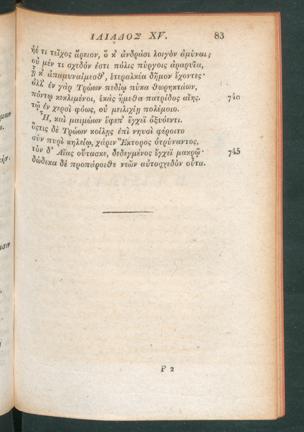 ΙΛΙΑΔΟΣ XV. 83
ἠέ τι τεῖχος ἄρειον, ὅ κ' ἀνδράσι λοιγὸν ἀμύναι;
οὐ μέν τι σχεδόν ἐστι πόλις πύργοις ἀραρυῖα,
ᾗ κ' ἀπαμυναίμεσθ', ἑτεραλκέα δῆμον ἔχοντες·
ἀλλ' ἐν γὰρ Τρώων πεδίῳ πύκα θωρηκτάων,
πόντῳ κεκλιμένοι, ἑκὰς ἥμεθα πατρίδος αἴης. 740
τῷ ἐν χερσὶ φόως, οὐ μειλιχίῃ πολέμοιο.
Ἦ, καὶ μαιμώων ἔφεπ' ἔγχεϊ ὀξυόεντι.
ὅςτις δὲ Τρώων κοίλῃς ἐπὶ νηυσὶ φέροιτο
σὺν πυρὶ κηλείῳ, χάριν Ἕκτορος ὀτρύναντος,
τὸν δ' Αἴας οὔτασκε, δεδεγμένος ἔγχεϊ μακρῷ· 745
δώδεκα δὲ προπάροιθε νεῶν αὐτοσχεδὸν οὖτα.
F 2